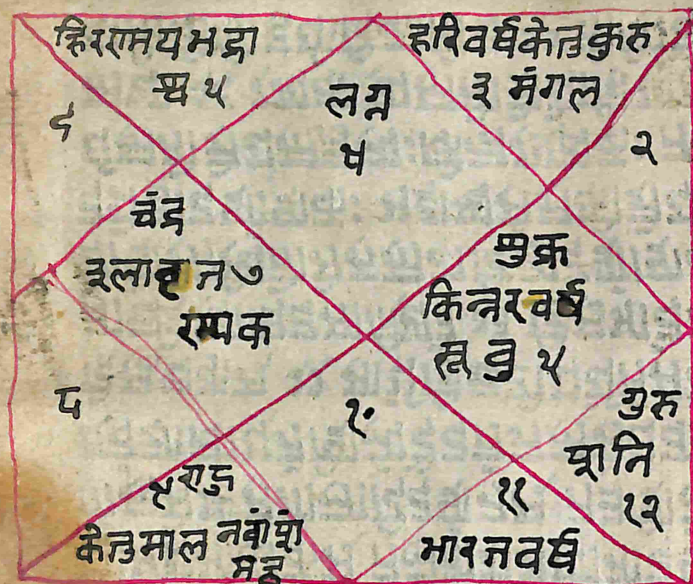 हिररामयभद्रा
श्व ५
६
लग्न
४
हरिवर्षकेतकुरु
३ मंगल
२
चंद्र
इलावृत ७
रम्यक
शुक्र
किन्नरवर्ष
सू बु १
८
१०
गुरु
शनि
१२
९ राहु
केतमाल नवांशं
११
भारतवर्ष